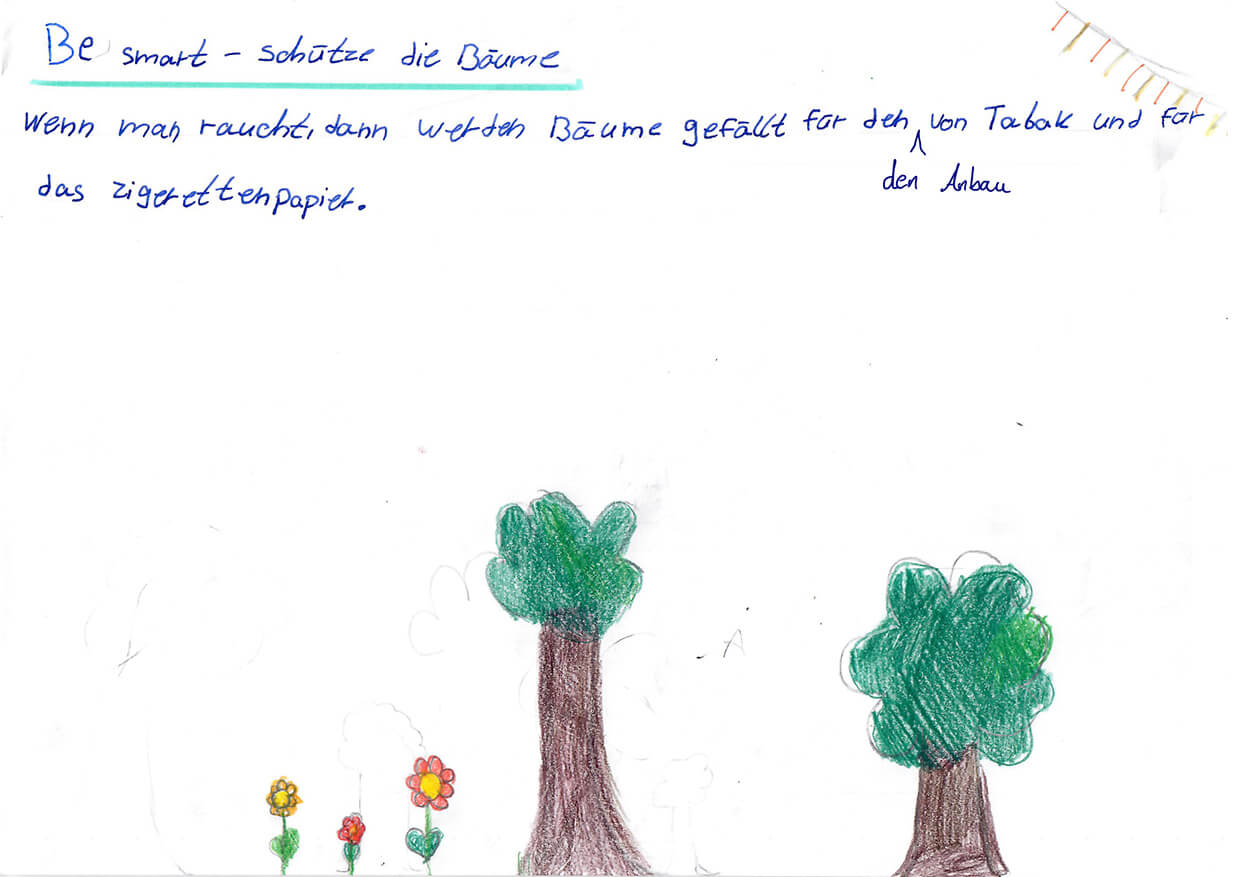 Be smart – schütze die Bäume
Wenn man raucht, dann werden Bäume gefällt für den von Tabak und für
den Anbau
das zigerettenpapier.
A